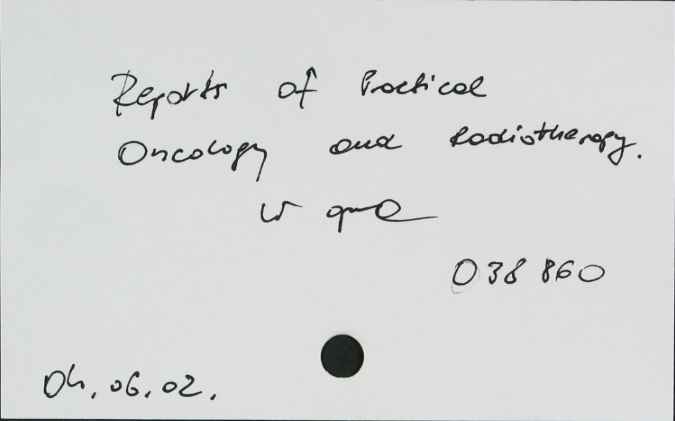 Reports of Practical
Oncology and Radiotherapy.
W
038 860
04.06.02.